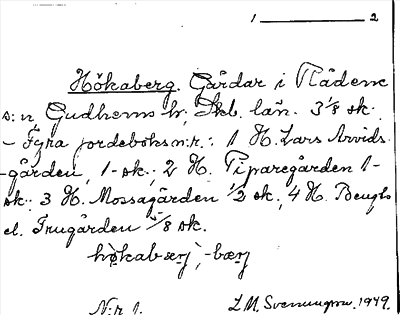 1 ———— 2
Hökaberg. Gårdar i Rådene
s:n, Gudhems hr, Skb. län. 3 1/8 sk.
– Fyra jordeboksn:r: 1 H. Lars Arvids-
-gården, 1- sk., 2 H. Piparegården 1-
sk. 3 H. Mossagården 1/2 sk., 4 H. Bengts
el. Frugården 5/8 sk.
hökabærj, -bærj
N:r 1. L. M. Svenungson. 1949.